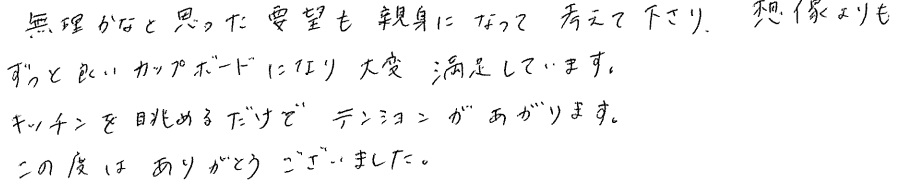 無理かなと思った要望も親身になって考えて下さり、想像よりも
ずっと良いカップボードになり大変満足しています。
キッチンを眺めるだけでテンションがあがります。
この度はありがとうございました。